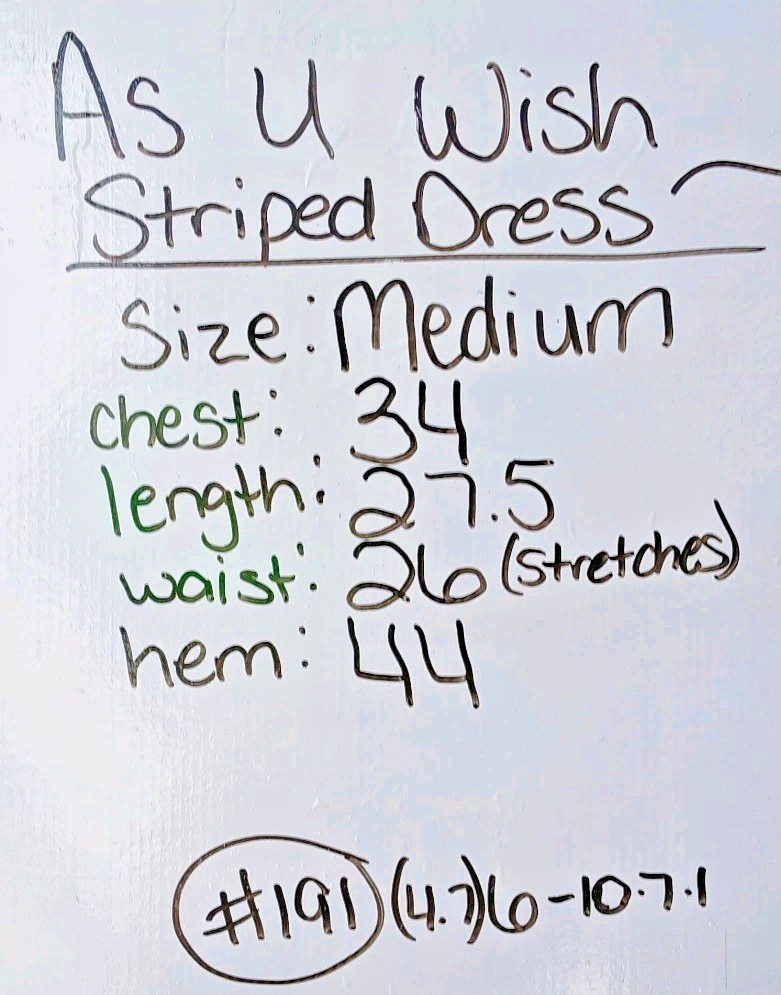 As U Wish
Striped Dress
Size: Medium
chest: 34
length: 27.5
waist: 26 (stretches)
hem: 44
#191 (4.7)6-10.7.1